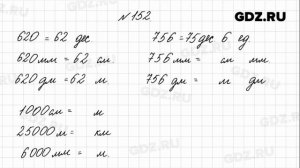 GDZ.RU
№ 152
620 = 62 дес.
756 = 75 дес 6 ед.
620 мм = 62 см.
756 мм = см мм
620 дм = 62 м.
756 дм = м дм
1000 см = м.
25000 м = км
6000 мм = м.